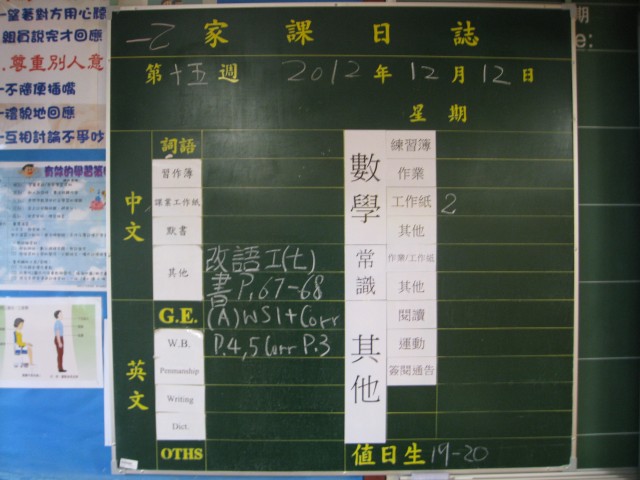 一望著對方用心聽
組員說完才回應
.尊重別人意
一不隨便插嘴
一禮貌地回應
一互相討論不爭吵
有效的學習策
期
e:
一乙 家課日誌
第十五週 2012年12月12日
星期
中文
詞語
習作簿
課業工作紙
默書
其他 改語工(七)
書P.67-68
英文
G.E. (A)WS1+Corr
W.B. P.4,5 Corr P.3
Penmanship
Writing
Dict.
OTHS
數學
練習簿
作業
工作紙 2
其他
常識
作業/工作紙
其他
其他
閱讀
運動
簽閱通告
值日生 19-20